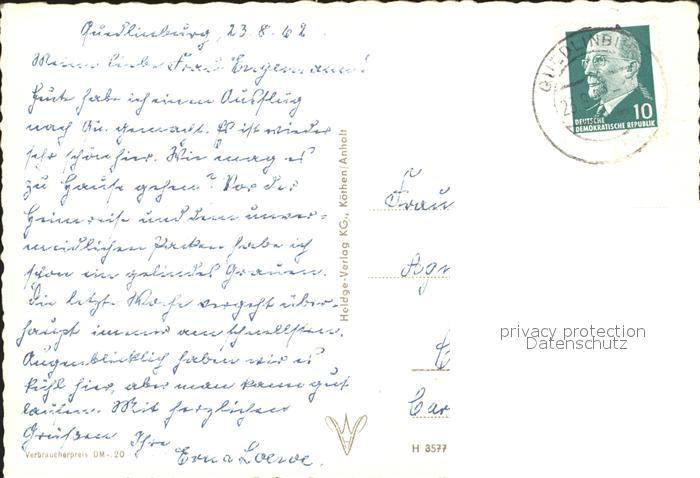 Quedlinburg, 23.8.62
Meine liebe Frau Engelmann!
Heute habe ich einen Ausflug
nach Qu. gemacht. Es ist wieder
sehr schön hier. Wie mag es
zu Hause gehen? Vor der
Heimreise und dem unver-
meidlichen Packen habe ich
schon ein gelindes Grauen.
Die letzte Woche vergeht über-
haupt immer am schnellsten.
Augenblicklich haben wir es
kühl hier, aber man kann gut
laufen. Mit herzlichen
Grüssen Ihre
Erna Loewe.
Verbraucherpreis DM -.20
Heldge-Verlag KG., Köthen/Anhalt
QUEDLINBU
10
DEUTSCHE
DEMOKRATISCHE REPUBLIK
Frau
Agn
Car
H 3577
privacy protection
Datenschutz